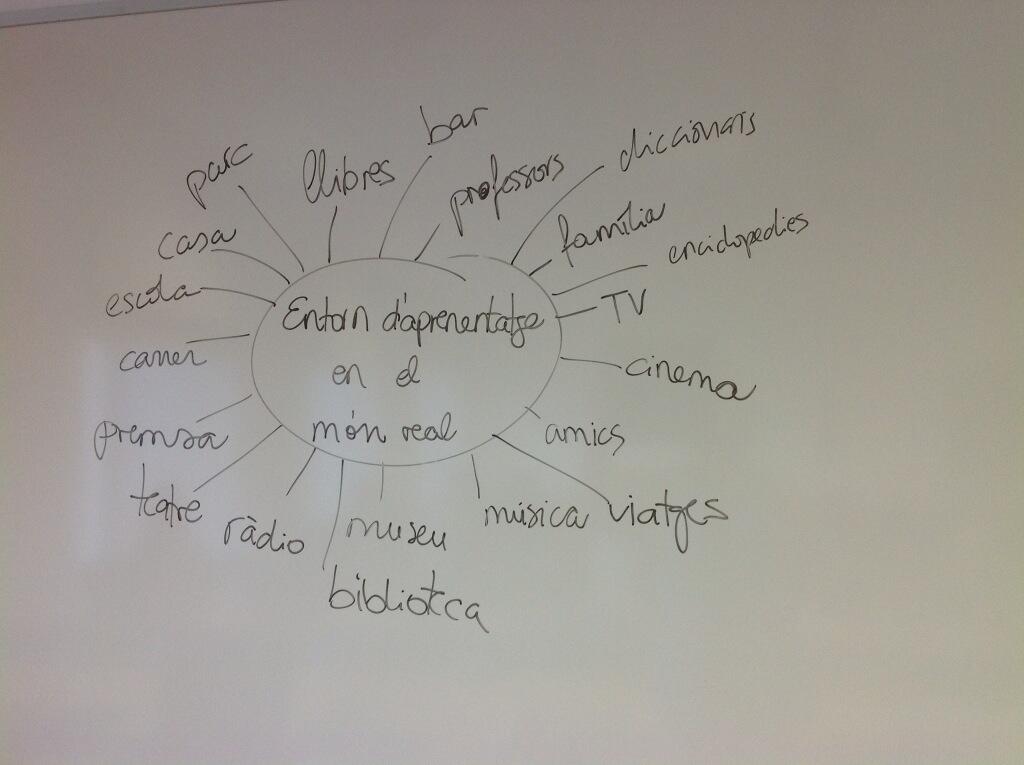 bar
parc
llibres
professors
diccionaris
casa
família
enciclopèdies
escola
TV
Entorn d'aprenentatge
en el
món real
carrer
cinema
premsa
amics
teatre
ràdio
museu
música
viatges
biblioteca